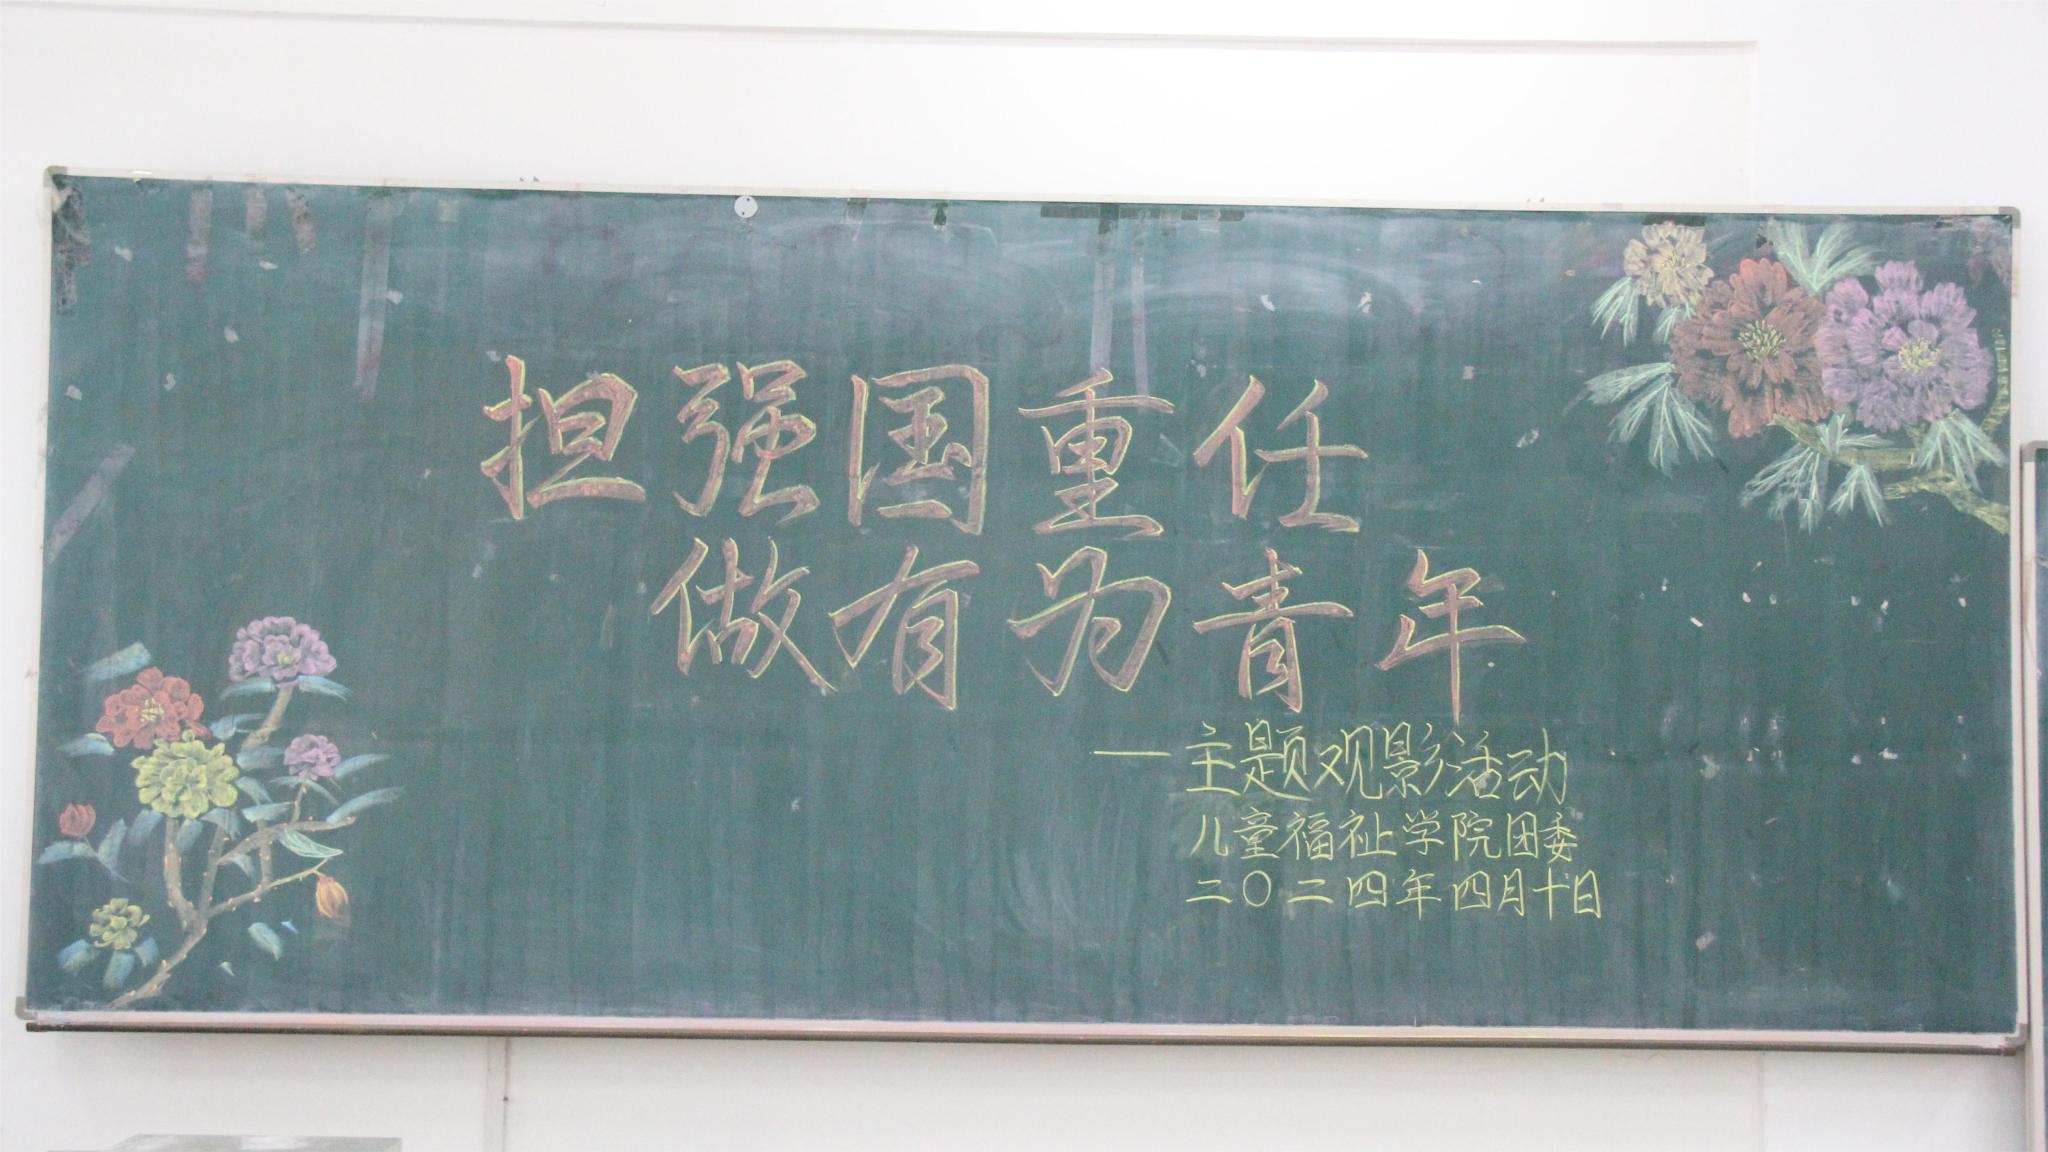 担强国重任
做有为青年
—主题观影活动
儿童福祉学院团委
二〇二四年四月十日